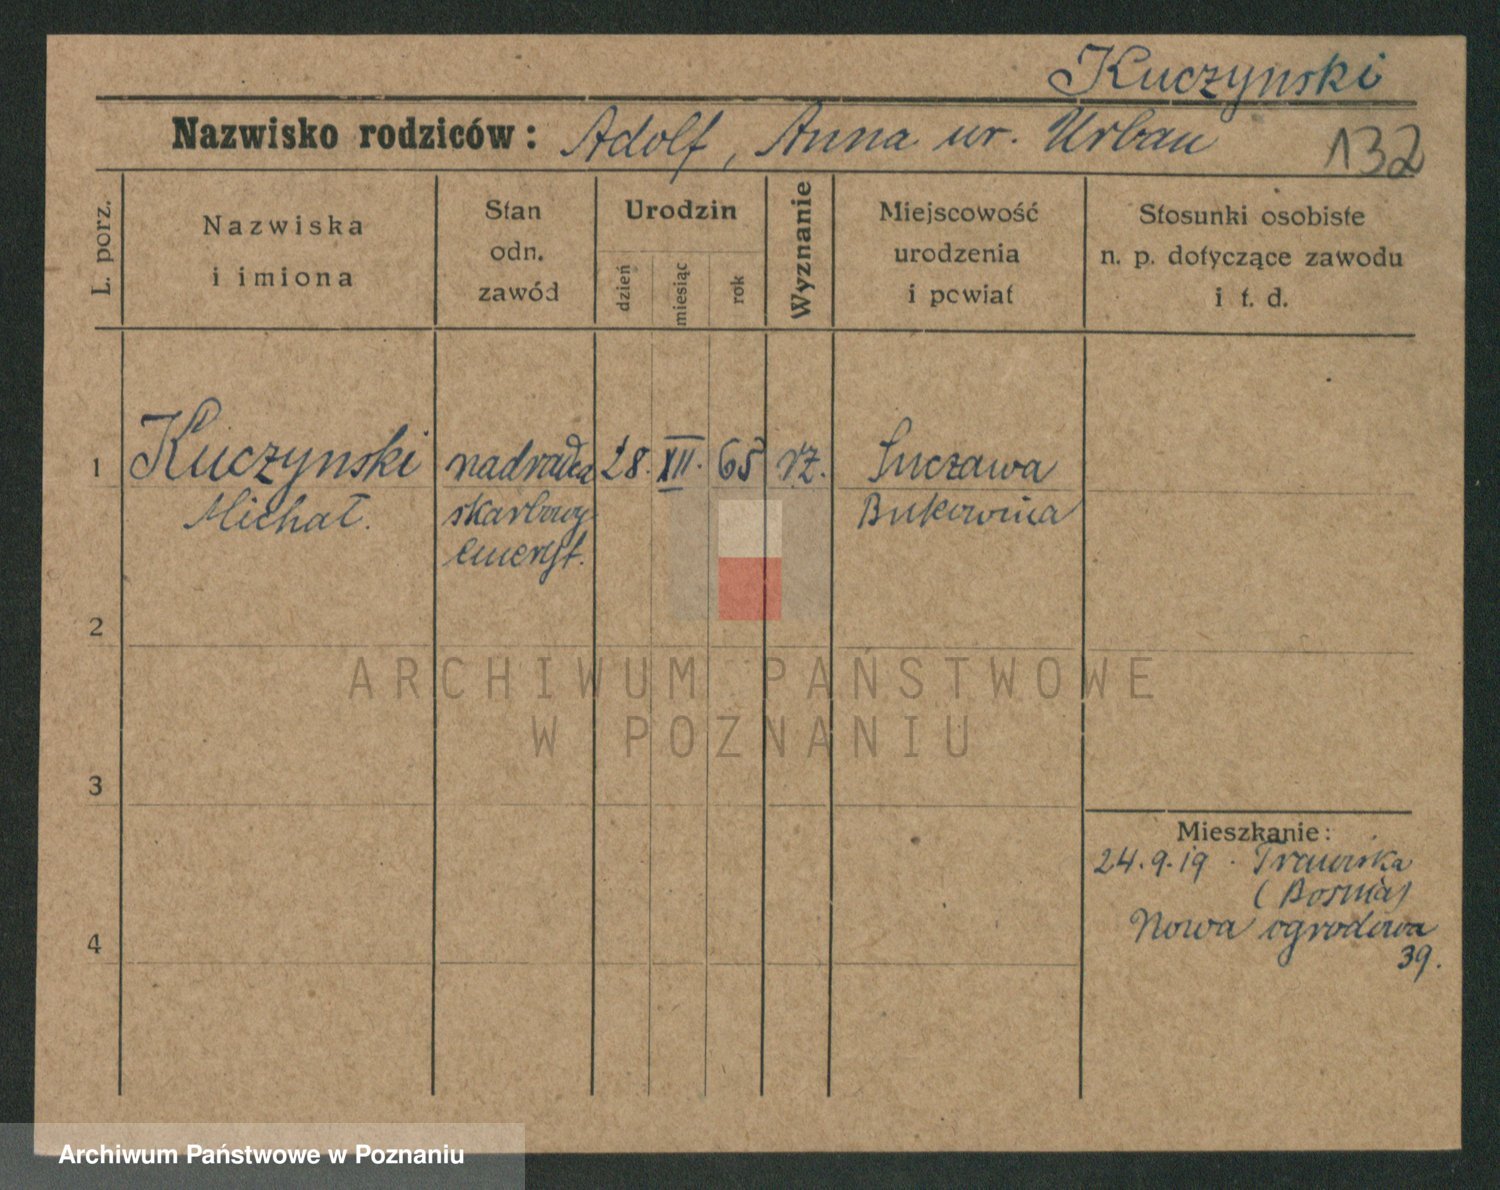 Kuczynski
Nazwisko rodziców: Adolf, Anna ur. Urban
132
L. porz.
Nazwiska
i imiona
Stan
odn.
zawód
Urodzin
dzień
miesiąc
rok
Wyznanie
Miejscowość
urodzenia
i powiat
Stosunki osobiste
n. p. dotyczące zawodu
i t. d.
1
Kuczynski
Michał.
nadradca
skarbowy
emeryt.
28.
XII.
65
rz.
Suczawa
Bukowina
2
ARCHIWUM PAŃSTWOWE
W POZNANIU
3
Mieszkanie:
24.9.19
(Bosnia)
Nowa ogrodowa
39.
4
Archiwum Państwowe w Poznaniu